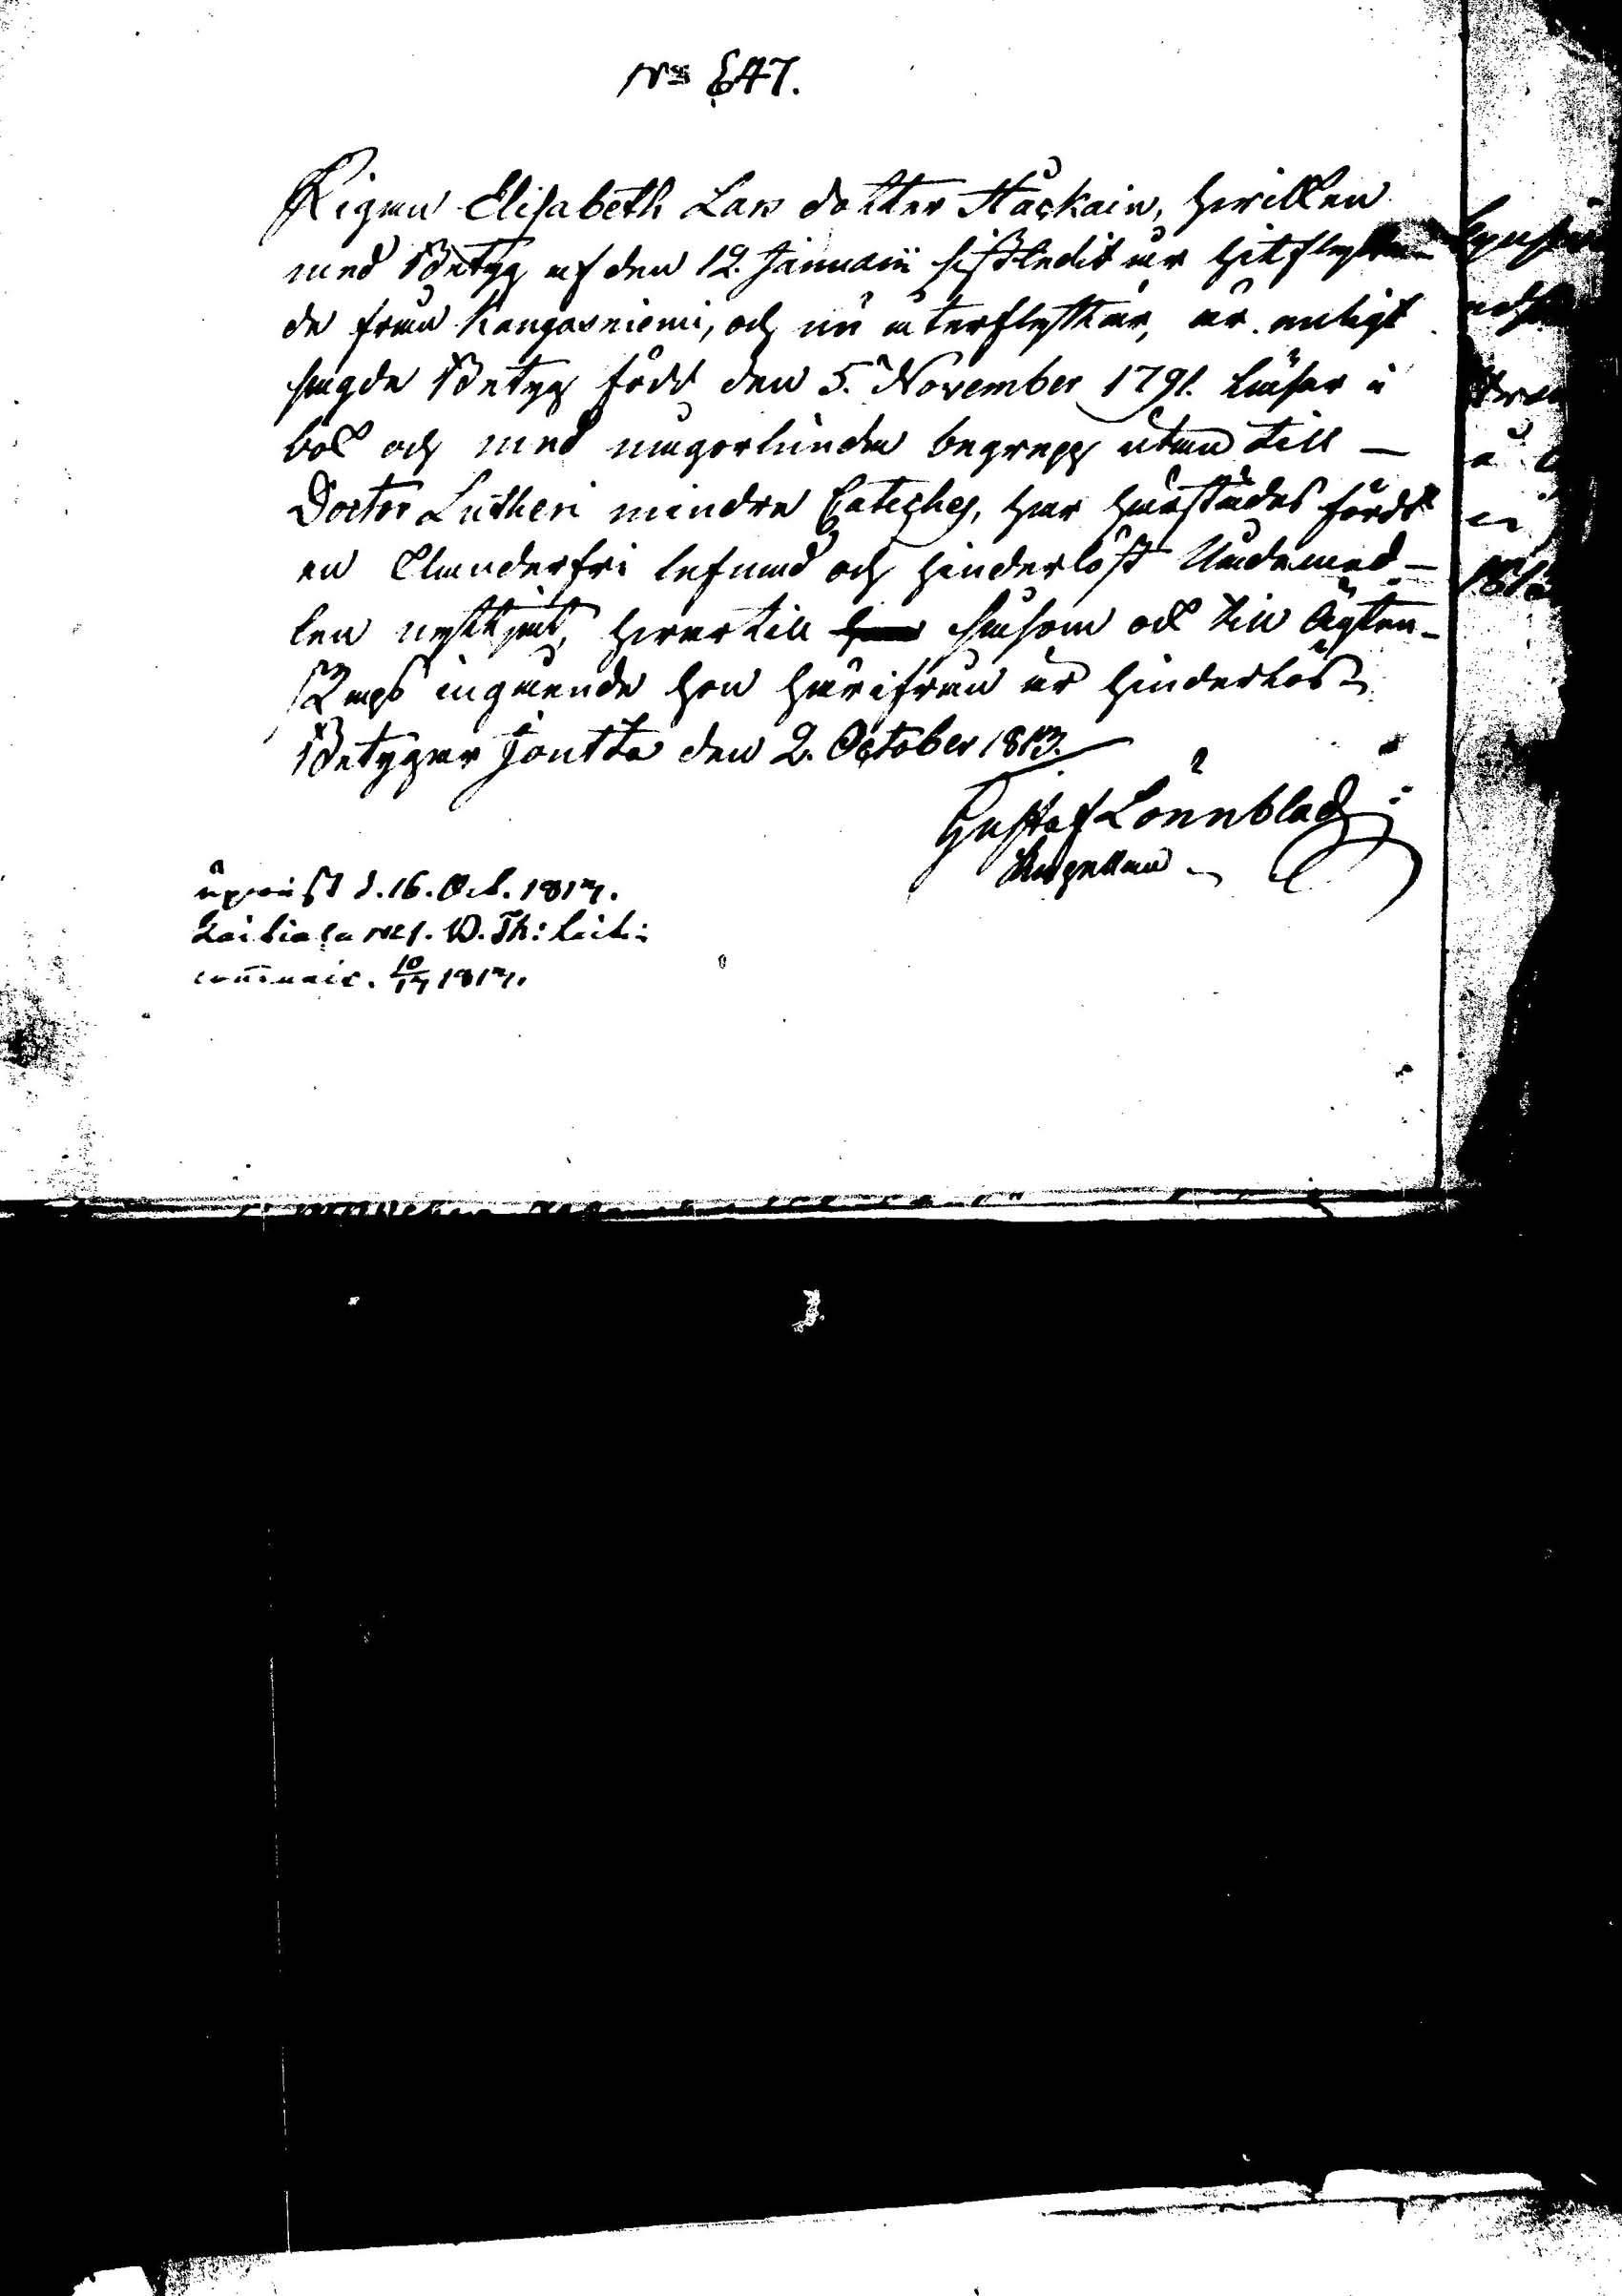 No 647.
Pigan Elisabeth Lars dotter Häckain, hwilken
med Betyg af den 12. Januarii sistledit är hitflyttan-
de från Kangasniemi, och nu återflyttar, är enligt
sagde Betyg född den 5. November 1791. läser i
bok och med någorlunda begrepp utan till —
Doctor Lutheri mindre Catechis, har härstädes fördt
en klanderfri lefnad och hinderlöst Nådemed-
len nyttjat, hwartill såsom ock till Ägten-
skaps ingående hon härifrån är hinderlös
Betygar Joutsa den 2. October 1813.
Gustaf Lönnblad
Kapellan
upwist d. 16. Oct. 1817.
1817.